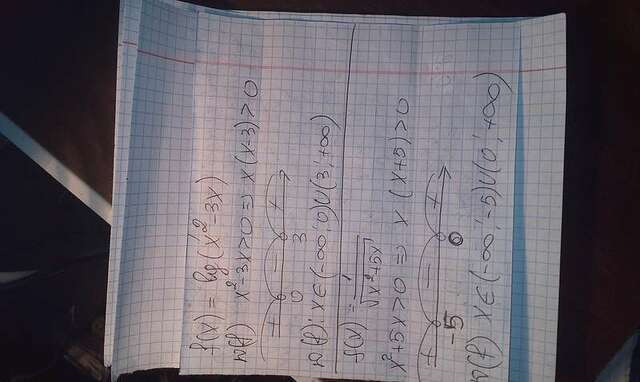 f(x) = lg(x²-3x)
D(f) x²-3x>0 => x(x-3)>0
+ - +
0 3
D(f): x∈(-∞; 0)∪(3; +∞)
f(x) = 1/√(x²+5x)
x²+5x>0 => x(x+5)>0
+ - +
-5 0
D(f) x∈(-∞; -5)∪(0; +∞)